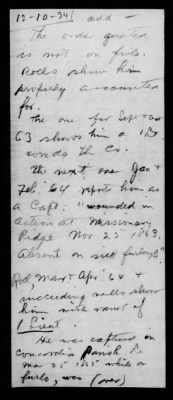 12-10-34 add —
The order quoted
is not on file.
Rolls show him
properly accounted
for.
The one for Sept & Oct
63 shows him a 1 Lt
comdg the Co.
The next one Jan &
Feb. '64 reports him as
a Capt: "wounded in
action at Missionary
Ridge Nov 25 1863.
Absent on sick furlough".
Roll, Mar & Apr '64 &
succeeding rolls show
him with rank of
1 Lieut.
He was captured in
Concordia Parish La
Mar 25 '65 while on
furlo, was (over)